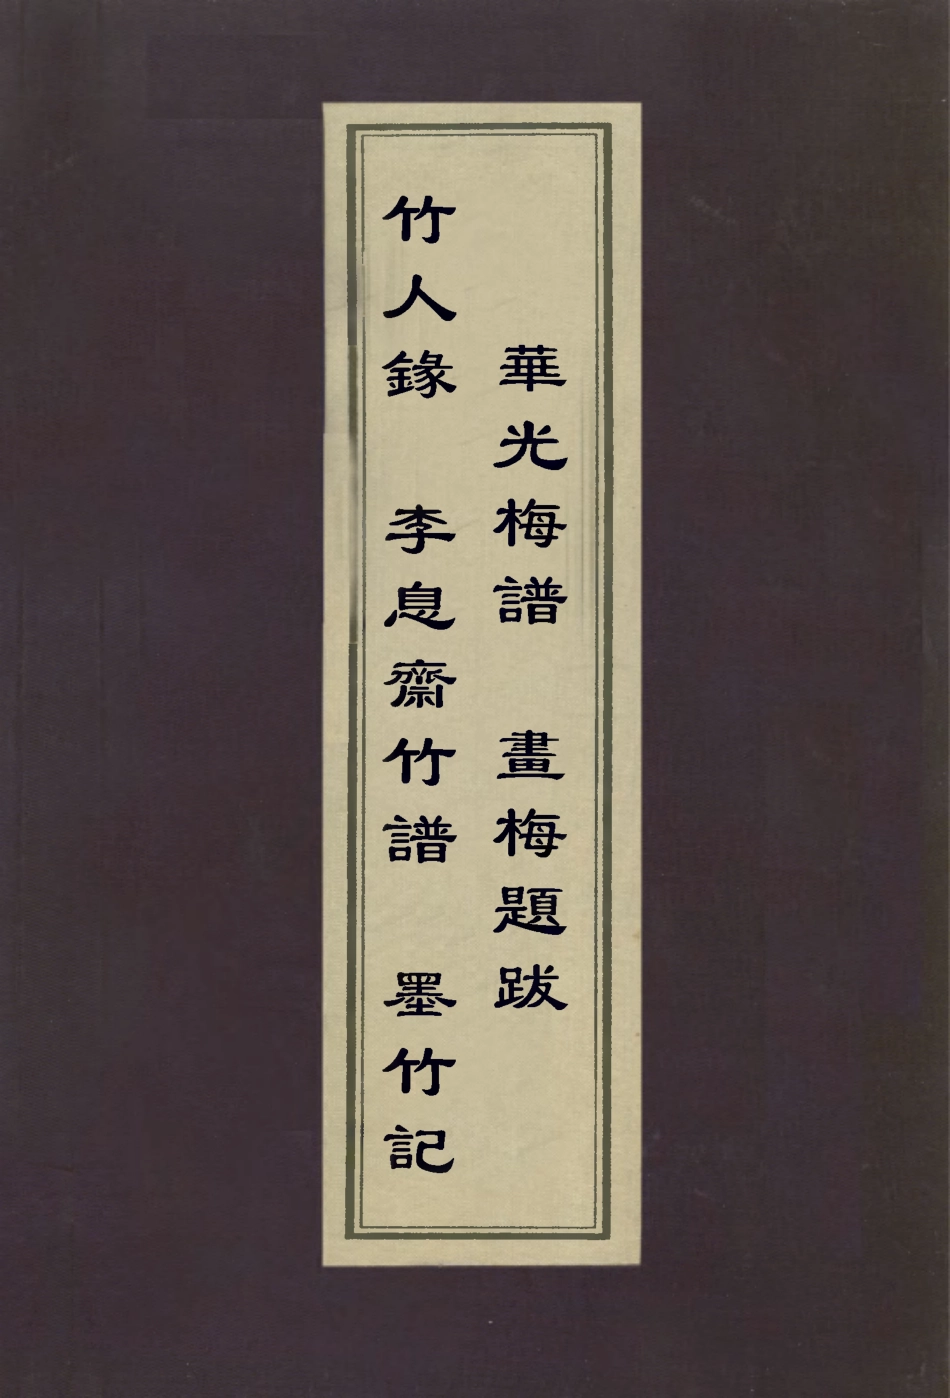 華光梅譜 畫梅題跋
竹人錄 李息齋竹譜 墨竹記